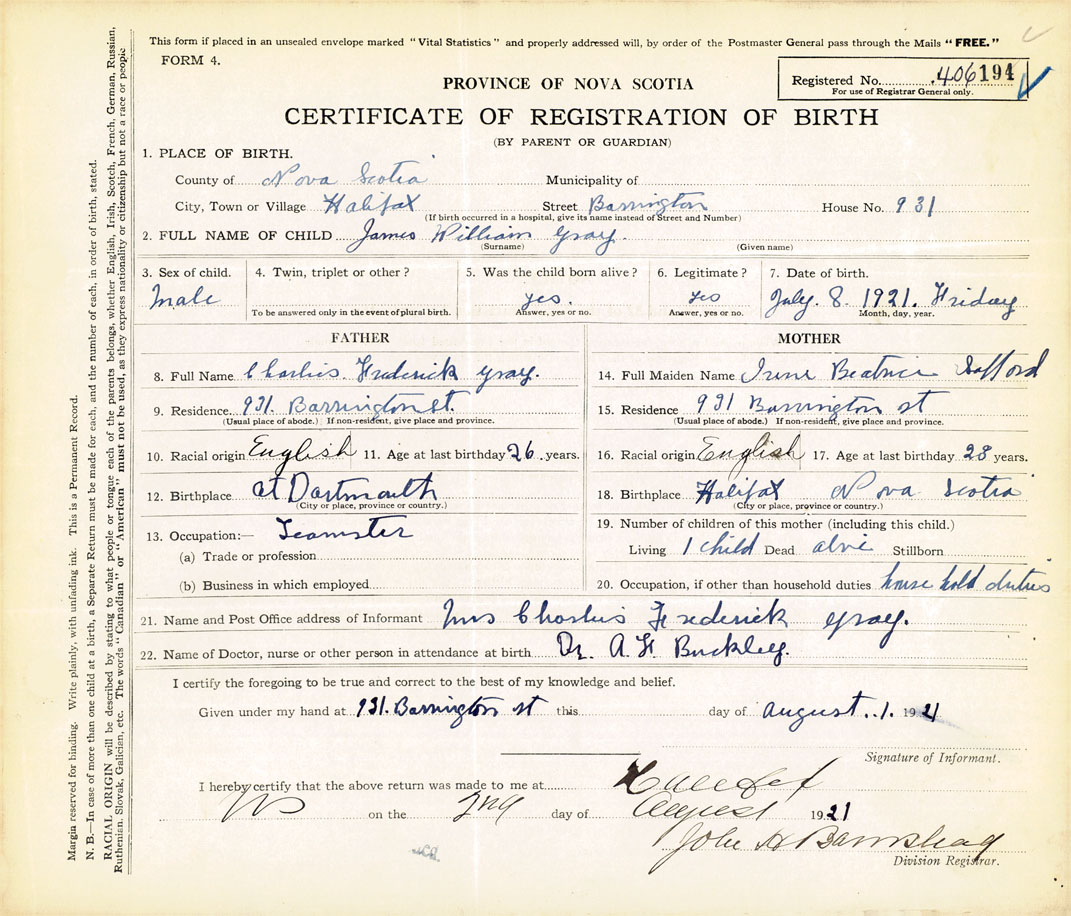 This form if placed in an unsealed envelope marked "Vital Statistics" and properly addressed will, by order of the Postmaster General pass through the Mails "FREE."
FORM 4.
Registered No. 406194
For use of Registrar General only.
PROVINCE OF NOVA SCOTIA
CERTIFICATE OF REGISTRATION OF BIRTH
(BY PARENT OR GUARDIAN)
1. PLACE OF BIRTH.
County of Nova Scotia Municipality of
City, Town or Village Halifax Street Barrington House No. 931
(If birth occurred in a hospital, give its name instead of Street and Number)
2. FULL NAME OF CHILD James William Gray.
(Surname) (Given name)
3. Sex of child. 4. Twin, triplet or other? 5. Was the child born alive? 6. Legitimate? 7. Date of birth.
Male yes. yes July. 8. 1921. Friday
To be answered only in the event of plural birth. Answer, yes or no. Answer, yes or no. Month, day, year.
FATHER MOTHER
8. Full Name Charlies Frederick Gray. 14. Full Maiden Name Irene Beatrice
9. Residence 931. Barrington St. 15. Residence 931 Barrington st
(Usual place of abode.) If non-resident, give place and province. (Usual place of abode.) If non-resident, give place and province.
10. Racial origin English 11. Age at last birthday 26 years. 16. Racial origin English 17. Age at last birthday 23 years.
12. Birthplace at Dartmouth 18. Birthplace Halifax Nova Scotia
(City or place, province or country.) (City or place, province or country.)
13. Occupation:— Teamster 19. Number of children of this mother (including this child.)
(a) Trade or profession Living 1 child Dead alvie Stillborn
(b) Business in which employed 20. Occupation, if other than household duties house hold duties
21. Name and Post Office address of Informant Mrs Charlies Frederick Gray.
22. Name of Doctor, nurse or other person in attendance at birth Dr. A. F. Buckley.
I certify the foregoing to be true and correct to the best of my knowledge and belief.
Given under my hand at 931. Barrington st this day of August..1. 1921
Signature of Informant.
I hereby certify that the above return was made to me at Halifax
NS on the 2nd day of August 1921
John H Barnstead
Division Registrar.
Margia reserved for binding. Write plainly, with unfading ink. This is a Permanent Record.
N. B.—In case of more than one child at a birth, a Separate Return must be made for each, and the number of each, in order of birth, stated.
RACIAL ORIGIN will be described by stating to what people or tongue each of the parents belongs, whether English, Irish, Scotch, French, German, Russian,
Ruthenian, Slovak, Galician, etc. The words "Canadian" or "American" must not be used, as they express nationality or citizenship but not a race or people